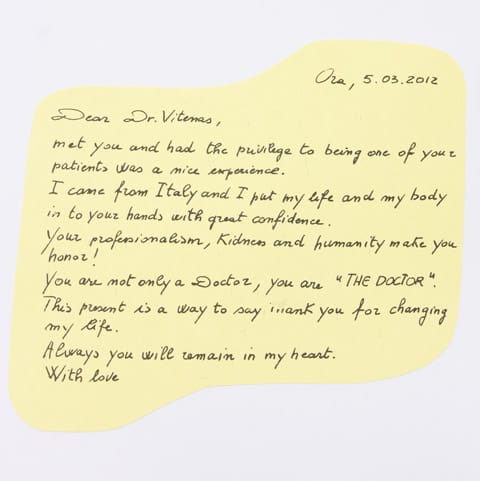 Ora, 5.03.2012
Dear Dr. Vitenas,
met you and had the privilege to being one of your
patients was a nice experience.
I came from Italy and I put my life and my body
in to your hands with great confidence.
Your professionalism, Kidness and humanity make you
honor!
You are not only a Doctor, you are "THE DOCTOR".
This present is a way to say thank you for changing
my life.
Always you will remain in my heart.
With love